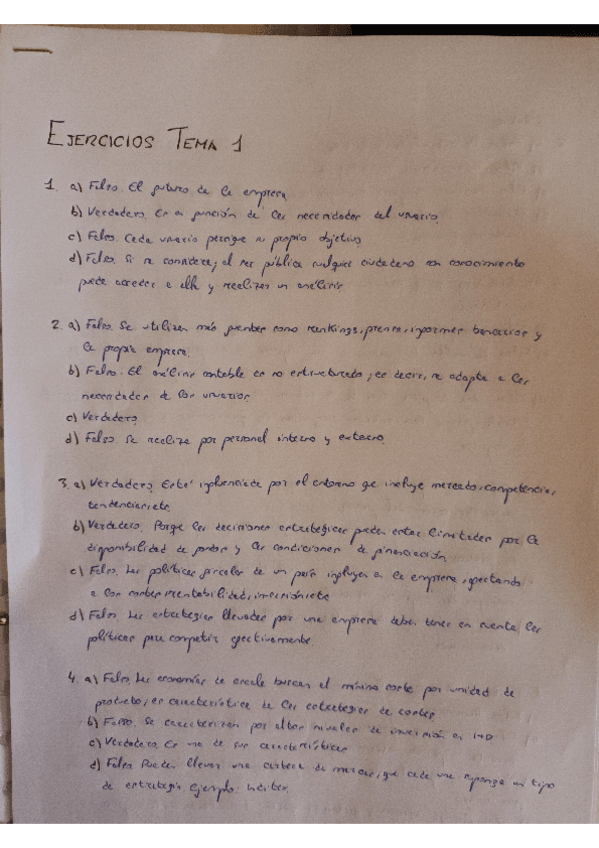 EJERCICIOS TEMA 1
1. a) Falso. El futuro de la empresa
b) Verdadero. Es en función de las necesidades del usuario.
c) Falso. Cada usuario persigue su propio objetivo
d) Falso. Si se considera, al ser pública cualquier ciudadano con conocimiento
puede acceder a ella y realizar un análisis
2. a) Falso. Se utilizan más fuentes como rankings, prensa, informes bancarios y
la propia empresa.
b) Falso. El análisis contable es no estructurado, es decir, se adapta a las
necesidades de los usuarios
c) Verdadero.
d) Falso. Se realiza por personal interno y externo.
3. a) Verdadero. Está influenciada por el entorno que incluye mercado, competencia,
tendencias, etc
b) Verdadero. Porqe las decisiones estratégicas pueden estar limitadas por la
disponibilidad de fondos y las condiciones de financiación
c) Falso. Las políticas fiscales de un país influyen en la empresa, afectando
a los costes, rentabilidad, inversión, etc
d) Falso. Las estrategias llevadas por una empresa deben tener en cuenta las
políticas para competir efectivamente
4. a) Falso. Las economías de escala buscan el mínimo coste por unidad de
producto, es característica de las estrategias de costes
b) Falso. Se caracterizan por altos niveles de inversión en I+D
c) Verdadero. Es una de sus características
d) Falso. Pueden llevar una cartera de marcas, que cada una suponga un tipo
de estrategia. Ejemplo: Inditex.